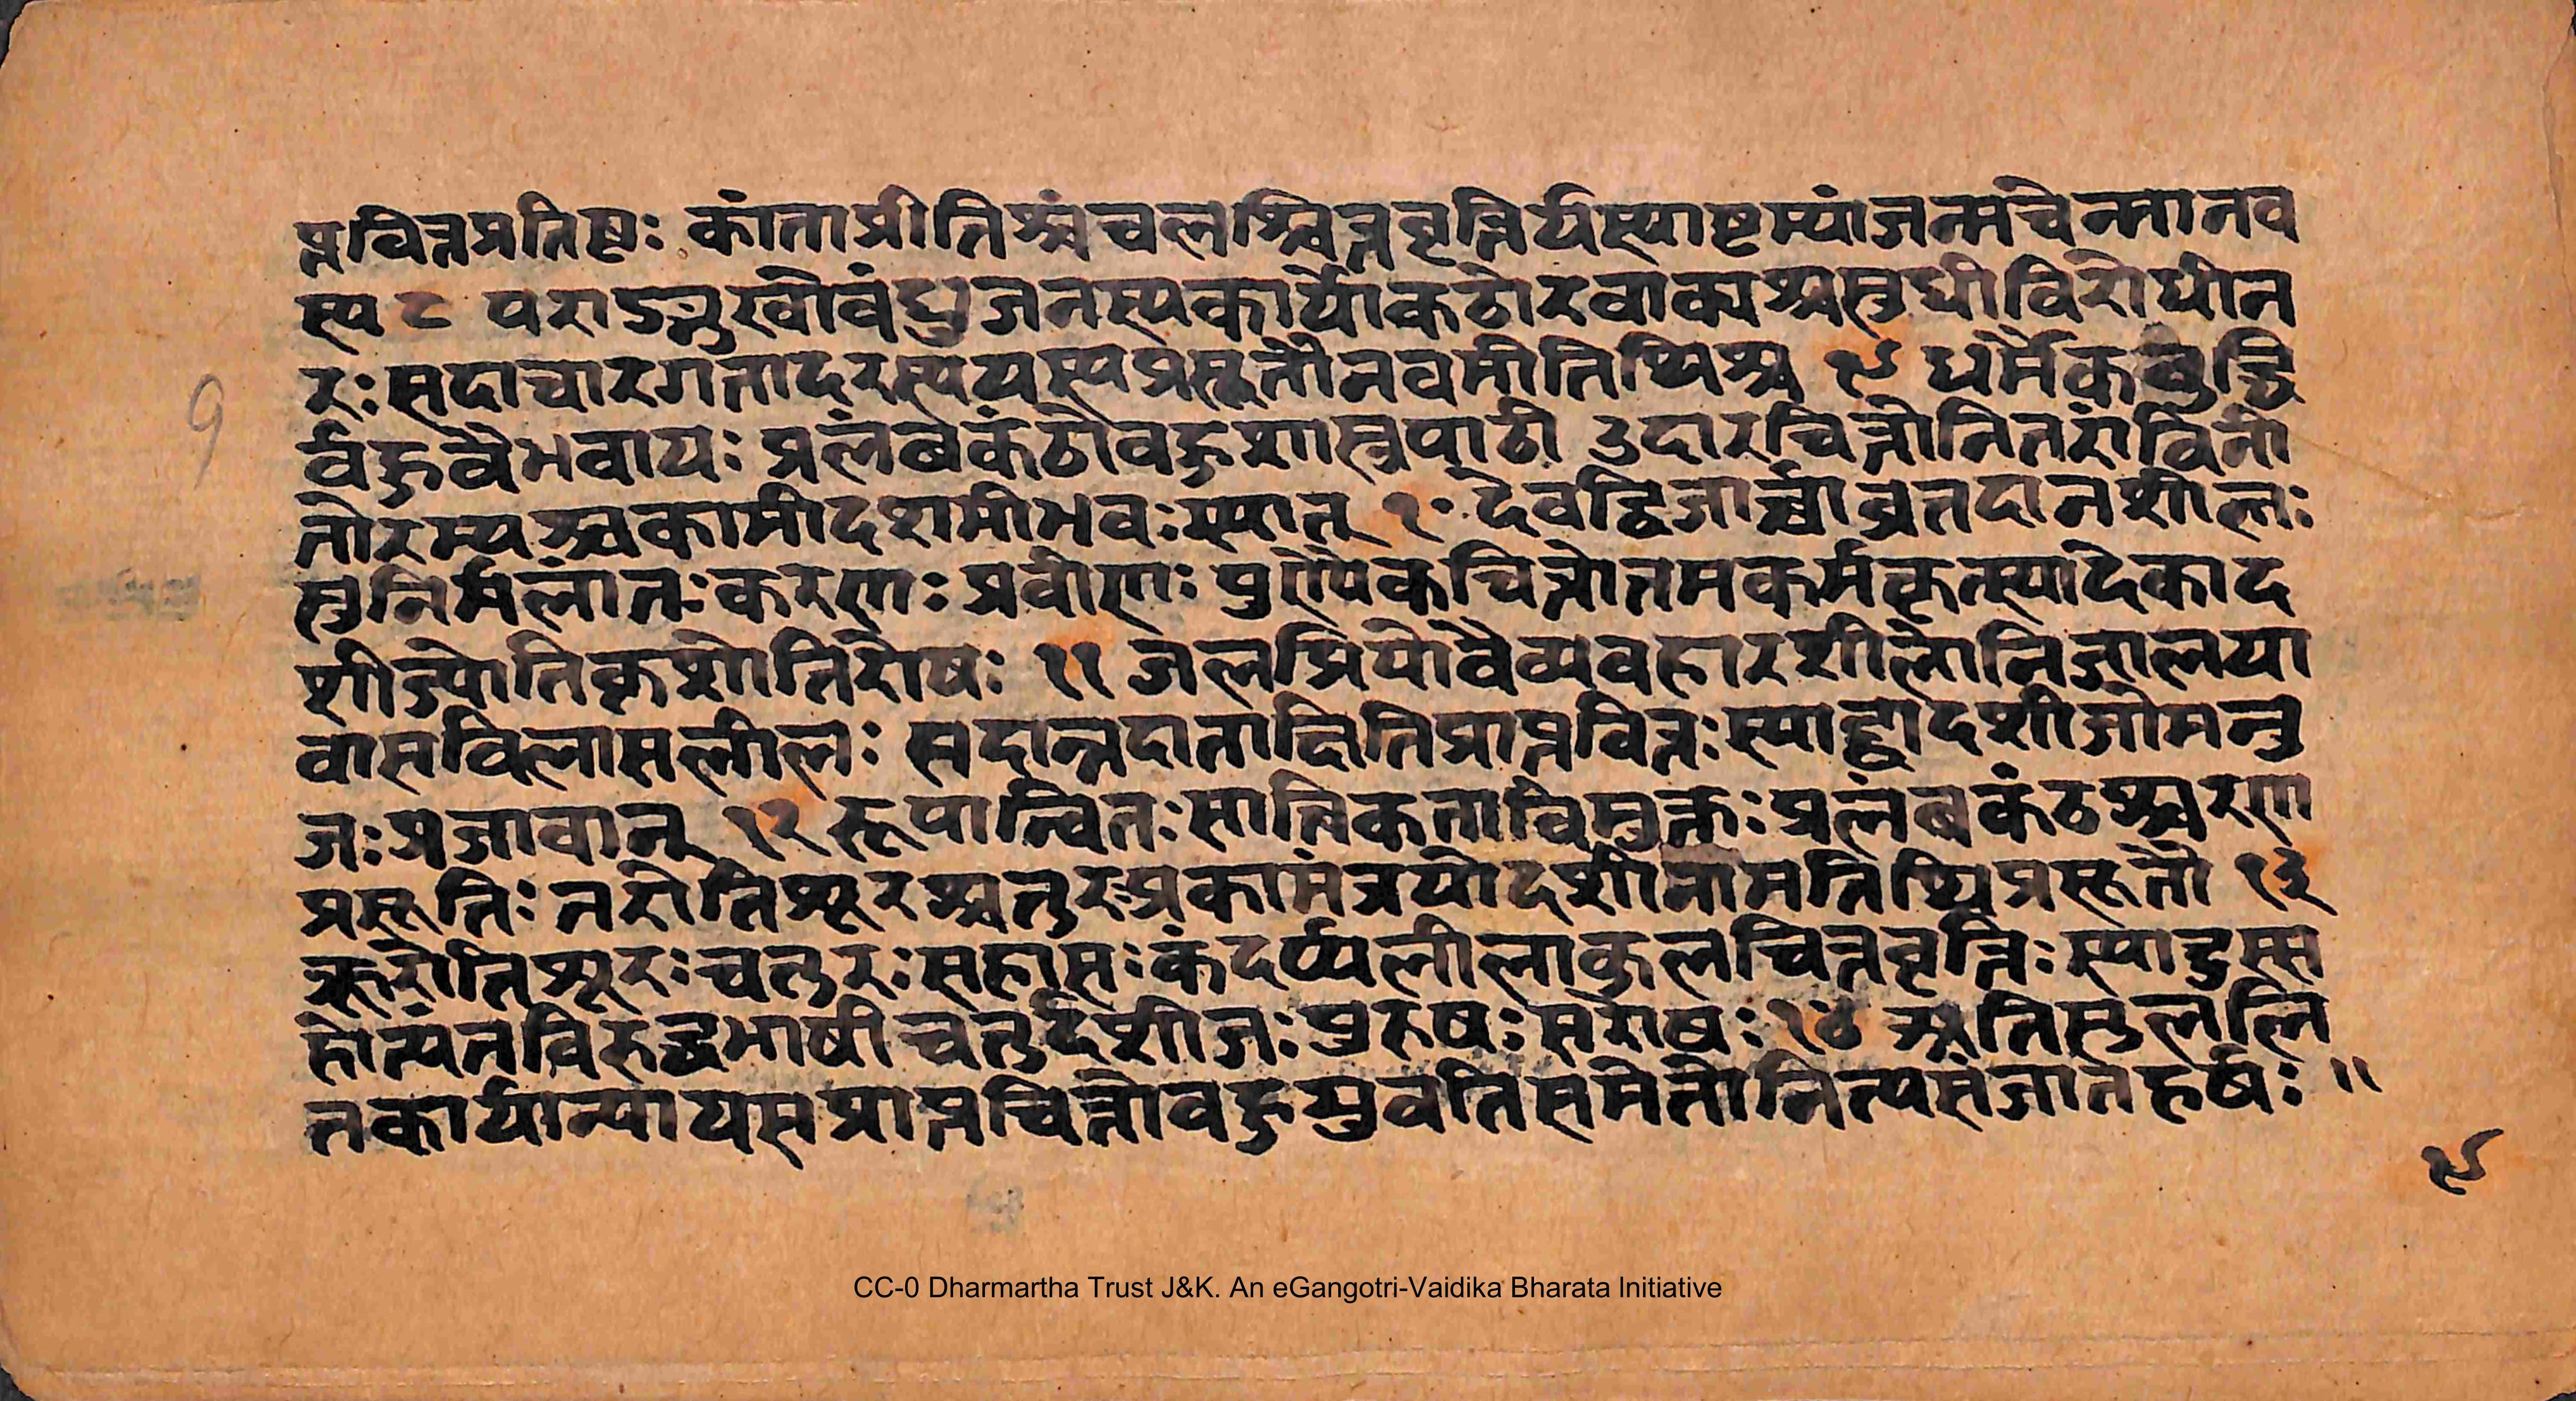 प्तवित्तप्रतिष्ठः कांताप्रीतिश्चंचलश्चित्तवृत्तिर्यस्याष्टम्यांजन्मचेन्मानव
स्य ८ पराङ्मुखोबंधुजनस्यकार्योकठोरवाक्यश्चसुधीविरोधीन
रःसदाचारगतादरस्ययस्यप्रसूतौनवमीतिथिश्च ९ धर्मैकबुद्धि
र्बहुवैभवायः प्रलंबकंठोबहुशास्त्रपाठी उदारचित्तोनितरांविनी
तोरम्यश्चकामीदशमीभवःस्यात् १० देवद्विजार्च्चाव्रतदानशीलः
सुनिर्मलांतःकरणः प्रवीणः पुण्यैकचित्तोतमकर्मकृत्स्यादेकाद
शीज्योतिकृशोतिरोषः ११ जलप्रियोवैव्यवहारशीलोनिजालया
वासविलासलीलः सदान्नदाताक्षितिप्राप्तवित्तःस्याद्द्वादशीजोमनु
जःप्रजावान् १२ रूपान्वितःसात्तिकताविमुक्तःप्रलंबकंठश्चरण
प्रसूतिः नरोतिशूरश्चतुरःप्रकामंत्रयोदशीनामतिथिप्रसूतौ १३
क्रूरोतिशूरःचतुरःसहासःकंदर्प्पलीलाकुलचित्तवृत्तिःस्याद्दुस्स
होत्यंतविरुद्धभाषीचतुर्दशीजःपुरुषःसरोषः १४ अतिसुललि
तकार्यान्यायसप्राप्तचित्तोबहुयुवतिसमेतोनित्यसंजातहर्षः ॥
९
9
CC-0 Dharmartha Trust J&K. An eGangotri-Vaidika Bharata Initiative